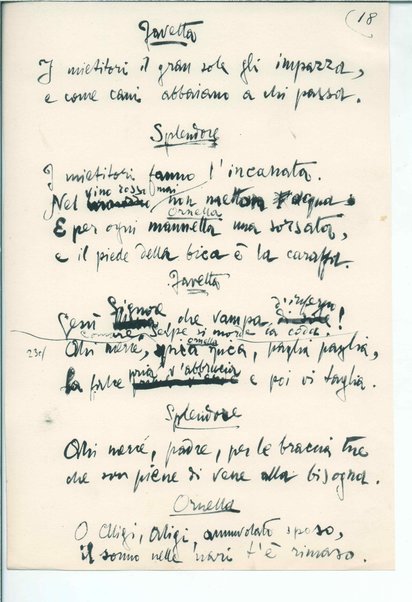 (18
Favetta
I mietitori il gran sole gli impazza,
e come cani abbaiano a chi passa.
Splendore
I mietitori fanno l'incanata.
Nel vino rosso mai non metton l'acqua
Ornella
E per ogni mannella una sorsata,
e il piede della bica è la caraffa.
Favetta
Gesù Signore che vampa d'inferno!
serpe si morde la coda!
Ornella
Ohi nerve, paglia paglia,
la falce pria v'abbrucia e poi vi taglia.
Splendore
Ohi nerve, padre, per le braccia tue
che son piene di vene alla bisogna.
Ornella
O Aligi, Aligi, annuvolato sposo,
il sonno nelle nari t'è rimaso.